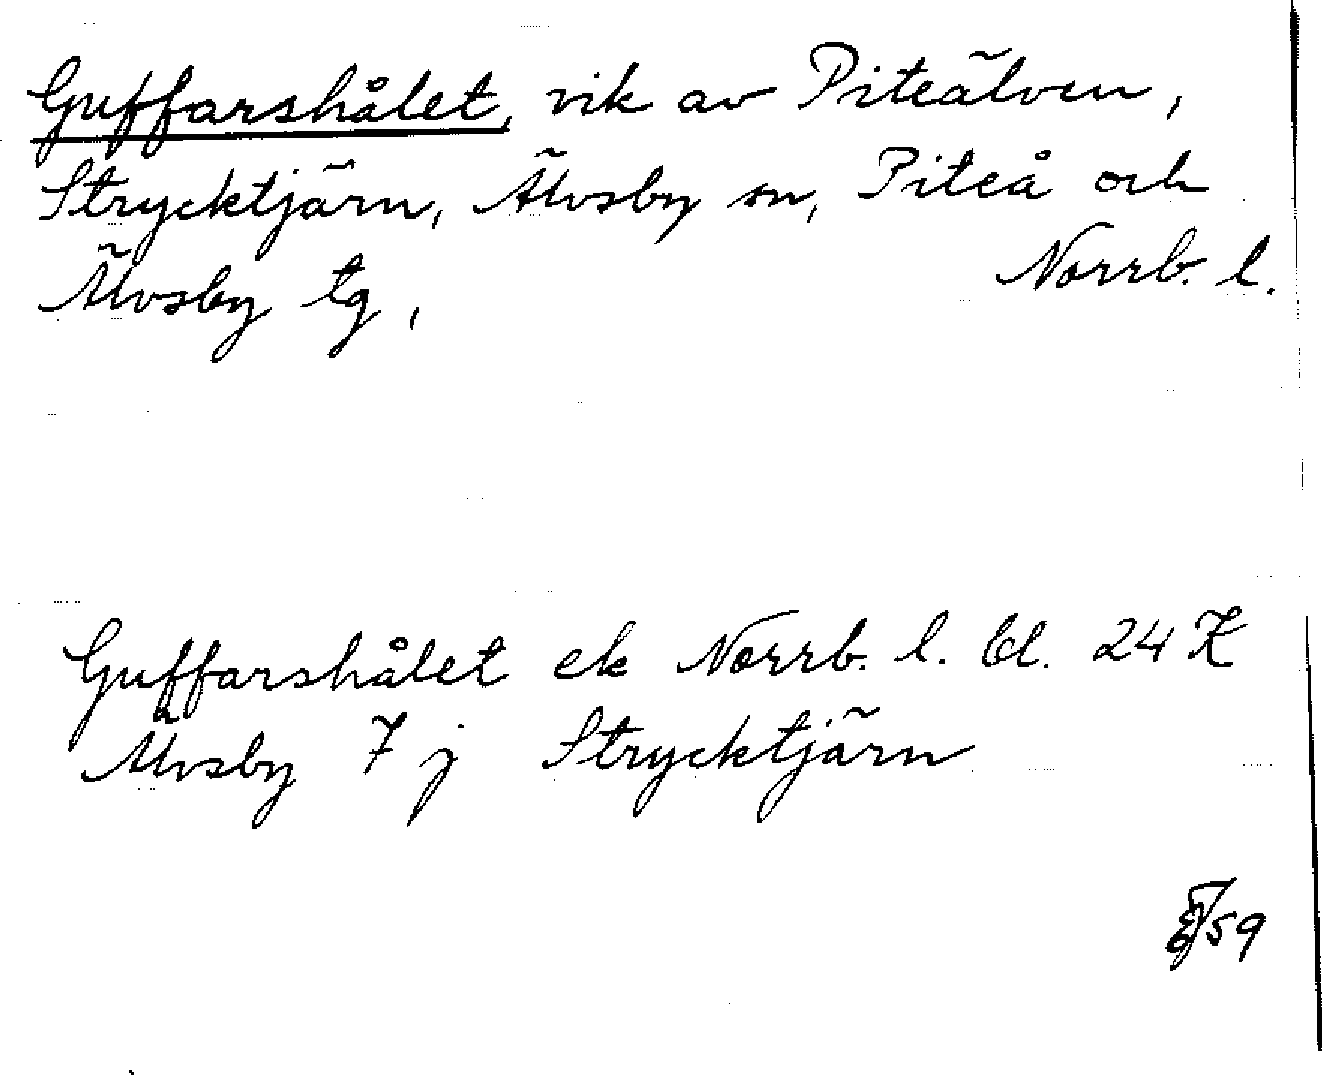 Guffarshålet, vik av Piteälven,
Strycktjärn, Älvsby sn, Piteå och
Älvsby tg, Norrb. l.
Guffarshålet ek Norrb. l. bl. 24 K
Älvsby 7 j Strycktjärn
59